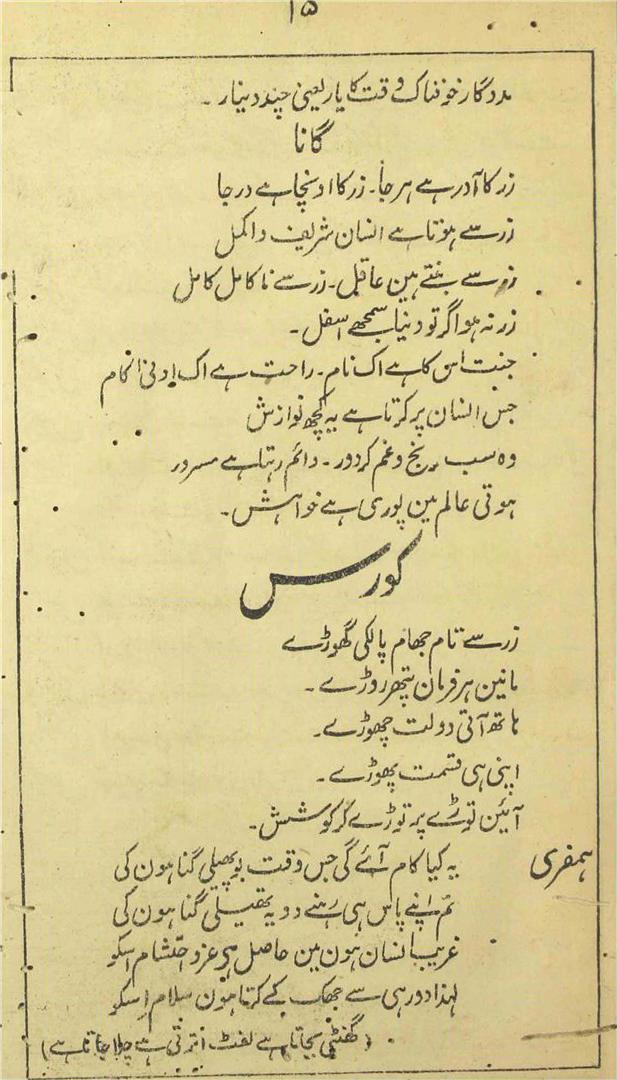 ۱۵
مددگار خوفناک وقت کا یار یعنی چند دینار ۔
گانا
زر کا آدر ہے ہر جا۔ زر کا اونچا ہے درجا
زر سے ہوتا ہے انسان شریف و اکمل
زر سے بنتے ہین عاقل۔ زر سے ناکامل کامل
زر نہ ہو اگر تو دنیا سمجھے اسفل ۔
جنت اس کا ہے اک نام۔ راحت ہے اک ادنیٰ کام
جس انسان پر کرتا ہے یہ کچھ نوازش
وہ سب رنج و غم کر دور ۔ دائم رہتا ہے مسرور
ہوتی عالم مین پوری ہے خواہش ۔
کورس
زر سے تام جھام پالکی گھوڑے
مانین ہر فرمان پتھر روڑے ۔
ہاتھ آتی دولت چھوڑے ۔
اپنی ہی قسمت پھوڑے ۔
آئین توڑے پر توڑے گر کوشش ۔
ہمفری یہ کیا کام آئے گی جس وقت بو پھیلی گناہون کی
تم اپنے پاس ہی رہنے دو یہ تھیلی گناہون کی
غریب انسان ہون مین حاصل ہے عز و احتشام اسکو
لہذا دور ہی سے جھک کے کرتا ہون سلام اسکو
(گھنٹی بجاتا ہے لفٹ اترتی ہے چلا جاتا ہے)